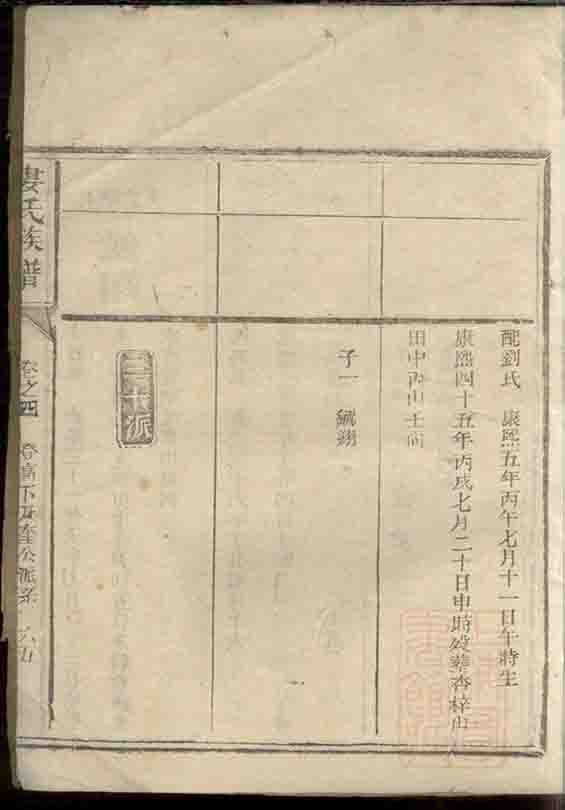 配劉氏 康熙五年丙午七月十一日午時生
康熙四十五年丙戌七月二十日申時歿葬杏梓山
田中丙山壬向
子一 毓翔
三十派
婁氏族譜
卷之四
下及奎公派系